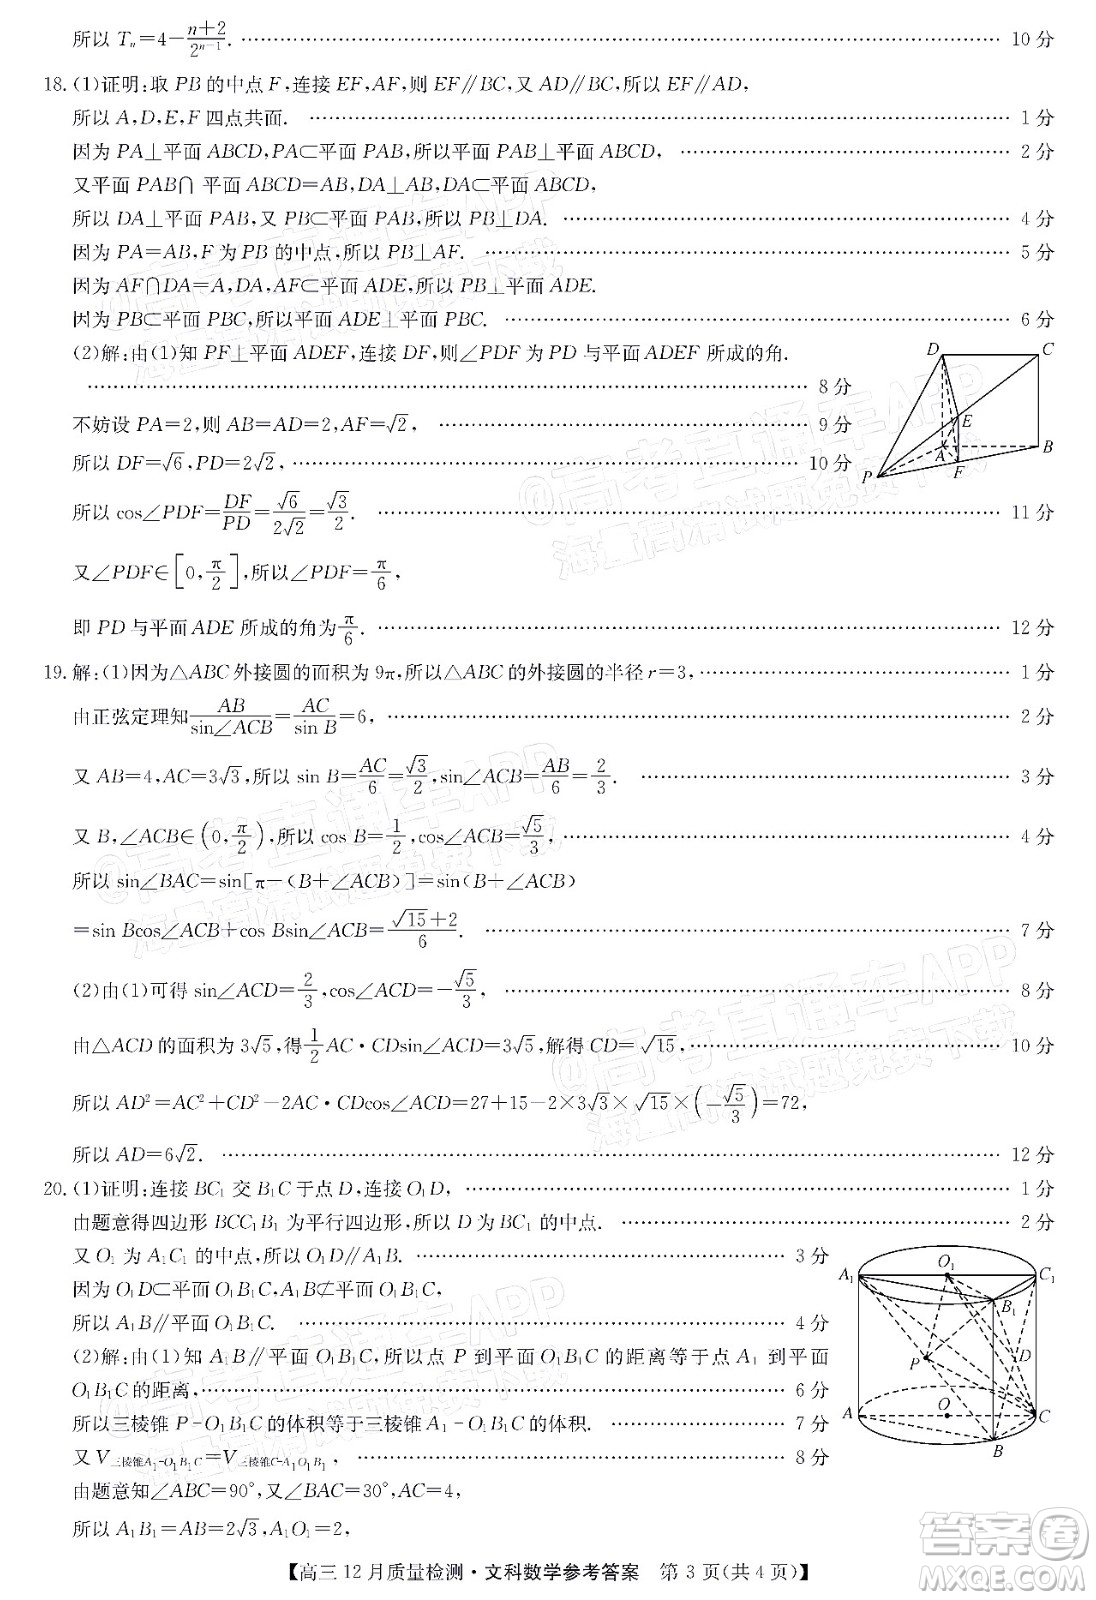 所以 Tₙ=4-(n+2)/2ⁿ⁻¹. 10 分
18. (1)证明:取 PB 的中点 F,连接 EF,AF,则 EF∥BC,又 AD∥BC,所以 EF∥AD,
所以 A,D,E,F 四点共面. 1 分
因为 PA⊥平面 ABCD,PA⊂平面 PAB,所以平面 PAB⊥平面 ABCD, 2 分
又平面 PAB∩ 平面 ABCD=AB,DA⊥AB,DA⊂平面 ABCD,
所以 DA⊥平面 PAB,又 PB⊂平面 PAB,所以 PB⊥DA. 4 分
因为 PA=AB,F 为 PB 的中点,所以 PB⊥AF. 5 分
因为 AF∩DA=A,DA,AF⊂平面 ADE,所以 PB⊥平面 ADE.
因为 PB⊂平面 PBC,所以平面 ADE⊥平面 PBC. 6 分
(2)解:由(1)知 PF⊥平面 ADEF,连接 DF,则∠PDF 为 PD 与平面 ADEF 所成的角.
8 分
不妨设 PA=2,则 AB=AD=2,AF=√2, 9 分
所以 DF=√6,PD=2√2, 10 分
D C E A B P F
所以 cos∠PDF=DF/PD=√6/2√2=√3/2. 11 分
又∠PDF∈[0,π/2],所以∠PDF=π/6,
即 PD 与平面 ADE 所成的角为π/6. 12 分
19. 解:(1)因为△ABC 外接圆的面积为 9π,所以△ABC 的外接圆的半径 r=3, 1 分
由正弦定理知AB/sin∠ACB=AC/sin B=6, 2 分
又 AB=4,AC=3√3,所以 sin B=AC/6=√3/2,sin∠ACB=AB/6=2/3. 3 分
又 B,∠ACB∈(0,π/2),所以 cos B=1/2,cos∠ACB=√5/3, 4 分
所以 sin∠BAC=sin[π-(B+∠ACB)]=sin(B+∠ACB)
=sin Bcos∠ACB+cos Bsin∠ACB=(√15+2)/6. 7 分
(2)由(1)可得 sin∠ACD=2/3,cos∠ACD=-√5/3, 8 分
由△ACD 的面积为 3√5,得1/2AC·CDsin∠ACD=3√5,解得 CD=√15, 10 分
所以 AD²=AC²+CD²-2AC·CDcos∠ACD=27+15-2×3√3×√15×(-√5/3)=72,
所以 AD=6√2. 12 分
20. (1)证明:连接 BC₁ 交 B₁C 于点 D,连接 O₁D, 1 分
由题意得四边形 BCC₁B₁ 为平行四边形,所以 D 为 BC₁ 的中点. 2 分
又 O₁ 为 A₁C₁ 的中点,所以 O₁D∥A₁B. 3 分
因为 O₁D⊂平面 O₁B₁C,A₁B⊄平面 O₁B₁C,
所以 A₁B∥平面 O₁B₁C. 4 分
(2)解:由(1)知 A₁B∥平面 O₁B₁C,所以点 P 到平面 O₁B₁C 的距离等于点 A₁ 到平面
O₁B₁C 的距离, 6 分
所以三棱锥 P-O₁B₁C 的体积等于三棱锥 A₁-O₁B₁C 的体积. 7 分
又 V三棱锥A₁-O₁B₁C=V三棱锥C-A₁O₁B₁, 8 分
由题意知∠ABC=90°,又∠BAC=30°,AC=4,
所以 A₁B₁=AB=2√3,A₁O₁=2,
A₁ O₁ C₁ B₁ P D A O C B
【高三 12 月质量检测·文科数学参考答案 第 3 页(共 4 页)】
@高考直通车APP
海量高清试题免费下载
@高考直通车APP
海量高清试题免费下载
@高考直通车APP
海量高清试题免费下载
@高考直通车APP
海量高清试题免费下载
@高考直通车APP
海量高清试题免费下载
答案卷